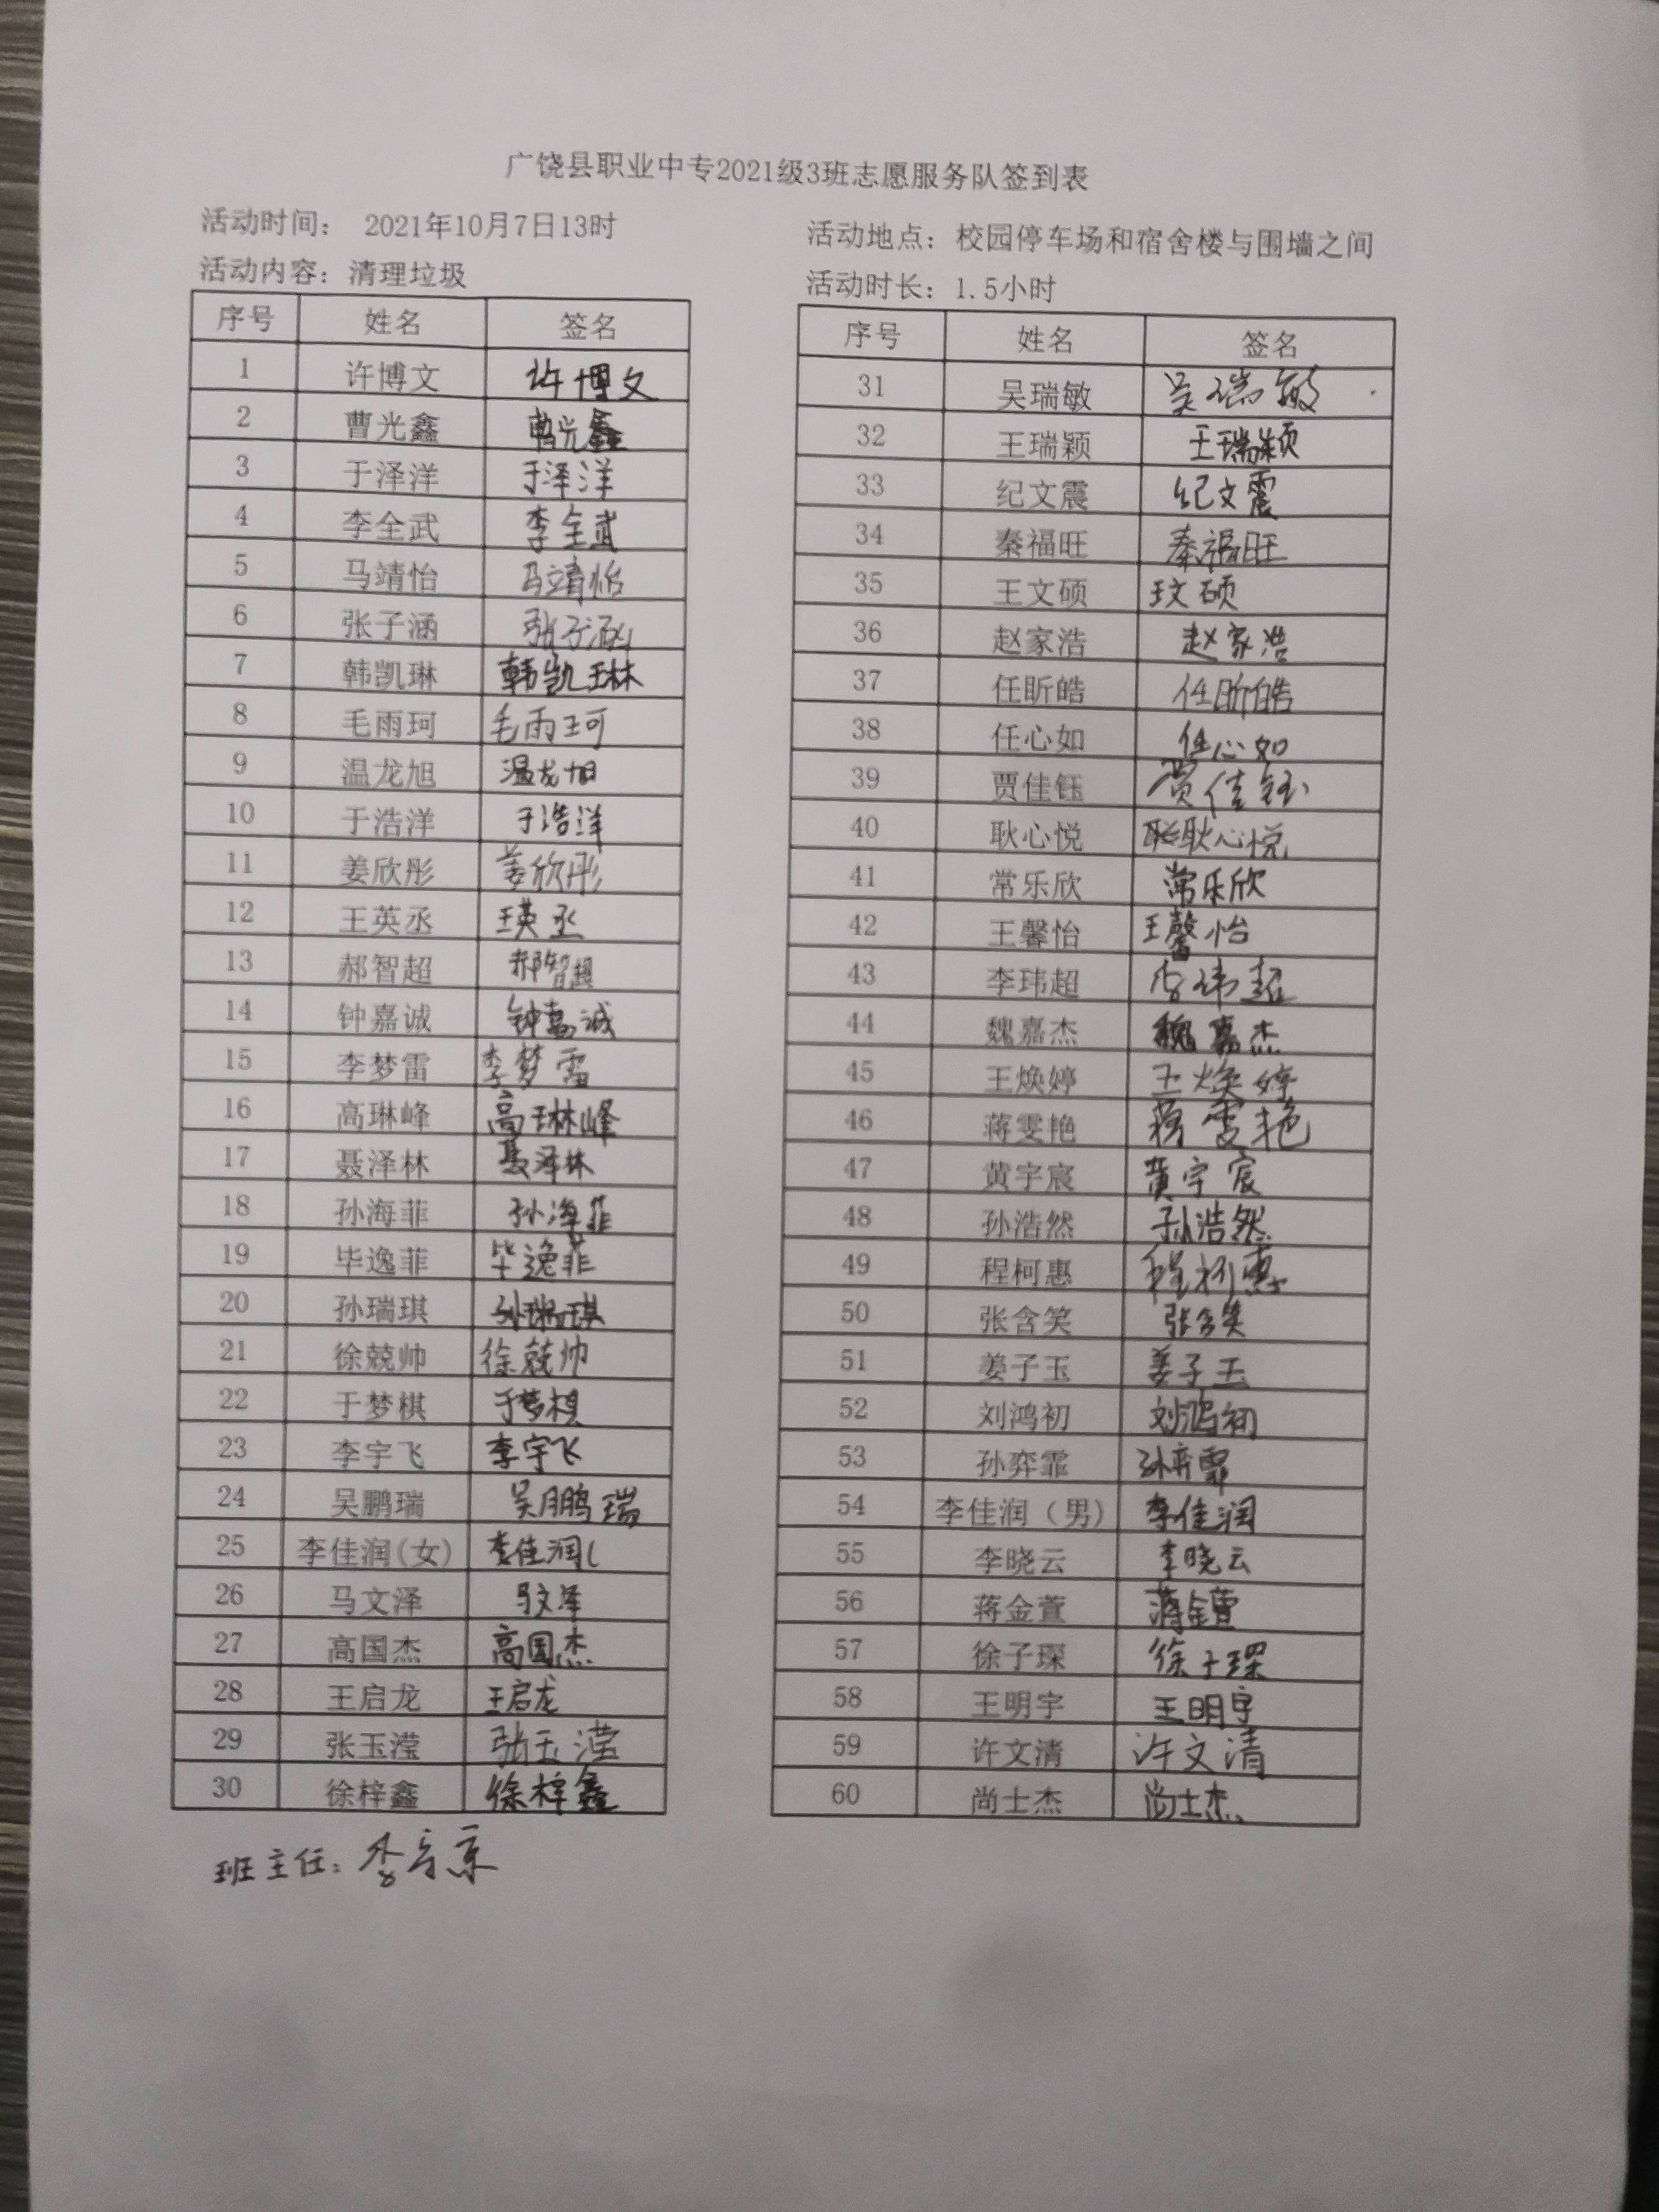 广饶县职业中专2021级3班志愿服务队签到表
活动时间： 2021年10月7日13时
活动地点：校园停车场和宿舍楼与围墙之间
活动内容：清理垃圾
活动时长：1.5小时
序号 姓名 签名
1 许博文 许博文
2 曹光鑫 曹光鑫
3 于泽洋 于泽洋
4 李全武 李全武
5 马靖怡 马靖怡
6 张子涵 张子涵
7 韩凯琳 韩凯琳
8 毛雨珂 毛雨珂
9 温龙旭 温龙旭
10 于浩洋 于浩洋
11 姜欣彤 姜欣彤
12 王英丞 王英丞
13 郝智超 郝智超
14 钟嘉诚 钟嘉诚
15 李梦雷 李梦雷
16 高琳峰 高琳峰
17 聂泽林 聂泽林
18 孙海菲 孙海菲
19 毕逸菲 毕逸菲
20 孙瑞琪 孙瑞琪
21 徐兢帅 徐兢帅
22 于梦棋 于梦棋
23 李宇飞 李宇飞
24 吴鹏瑞 吴鹏瑞
25 李佳润(女) 李佳润(
26 马文泽 马文泽
27 高国杰 高国杰
28 王启龙 王启龙
29 张玉滢 张玉滢
30 徐梓鑫 徐梓鑫
序号 姓名 签名
31 吴瑞敏 吴瑞敏
32 王瑞颖 王瑞颖
33 纪文震 纪文震
34 秦福旺 秦福旺
35 王文硕 王文硕
36 赵家浩 赵家浩
37 任昕皓 任昕皓
38 任心如 任心如
39 贾佳钰 贾佳钰
40 耿心悦 耿心悦
41 常乐欣 常乐欣
42 王馨怡 王馨怡
43 李玮超 李玮超
44 魏嘉杰 魏嘉杰
45 王焕婷 王焕婷
46 蒋雯艳 蒋雯艳
47 黄宇宸 黄宇宸
48 孙浩然 孙浩然
49 程柯惠 程柯惠
50 张含笑 张含笑
51 姜子玉 姜子玉
52 刘鸿初 刘鸿初
53 孙弈霏 孙弈霏
54 李佳润（男） 李佳润
55 李晓云 李晓云
56 蒋金萱 蒋金萱
57 徐子琛 徐子琛
58 王明宇 王明宇
59 许文清 许文清
60 尚士杰 尚士杰
班主任：李